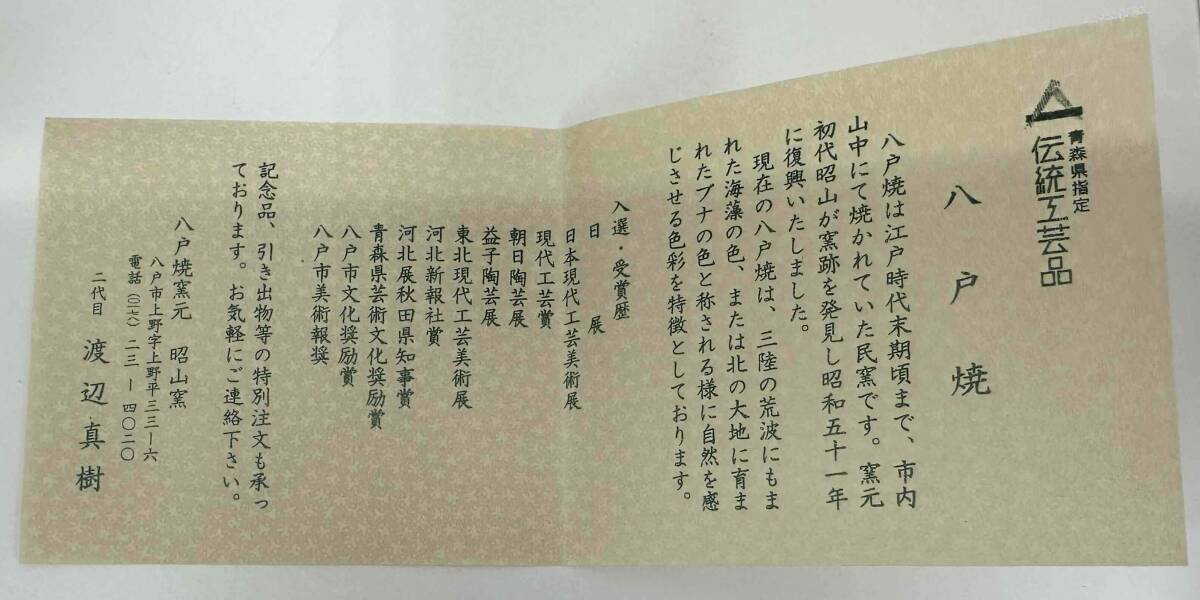 青森県指定
伝統工芸品
八戸焼
八戸焼は江戸時代末期頃まで、市内
山中にて焼かれていた民窯です。窯元
初代昭山が窯跡を発見し昭和五十一年
に復興いたしました。
現在の八戸焼は、三陸の荒波にもま
れた海藻の色、または北の大地に育ま
れたブナの色と称される様に自然を感
じさせる色彩を特徴としております。
入選・受賞歴
日展
日本現代工芸美術展
現代工芸賞
朝日陶芸展
益子陶芸展
東北現代工芸美術展
河北新報社賞
河北展秋田県知事賞
青森県芸術文化奨励賞
八戸市文化奨励賞
八戸市美術報奨
記念品、引き出物等の特別注文も承っ
ております。お気軽にご連絡下さい。
八戸焼窯元 昭山窯
八戸市上野字上野平三三ー六
電話(〇一七八)二三ー四〇二〇
二代目 渡辺真樹